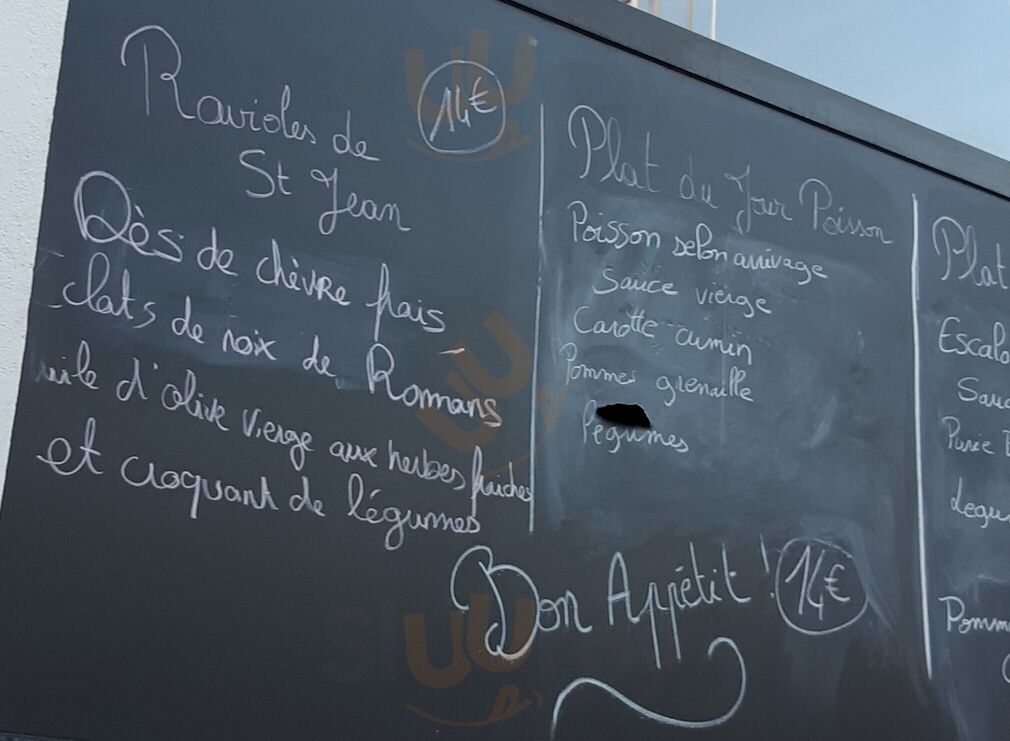 Ravioles de
St Jean
14€
Dès de chèvre frais
clats de noix de Romans
uile d'olive vierge aux herbes fraiches
et croquant de légumes
Plat du Jour Poisson
Poisson selon arrivage
Sauce vierge
Carotte cumin
Pommes grenaille
légumes
Bon Appétit !
14€
Plat
Escalo
Sauc
Purée
Legu
Pomm